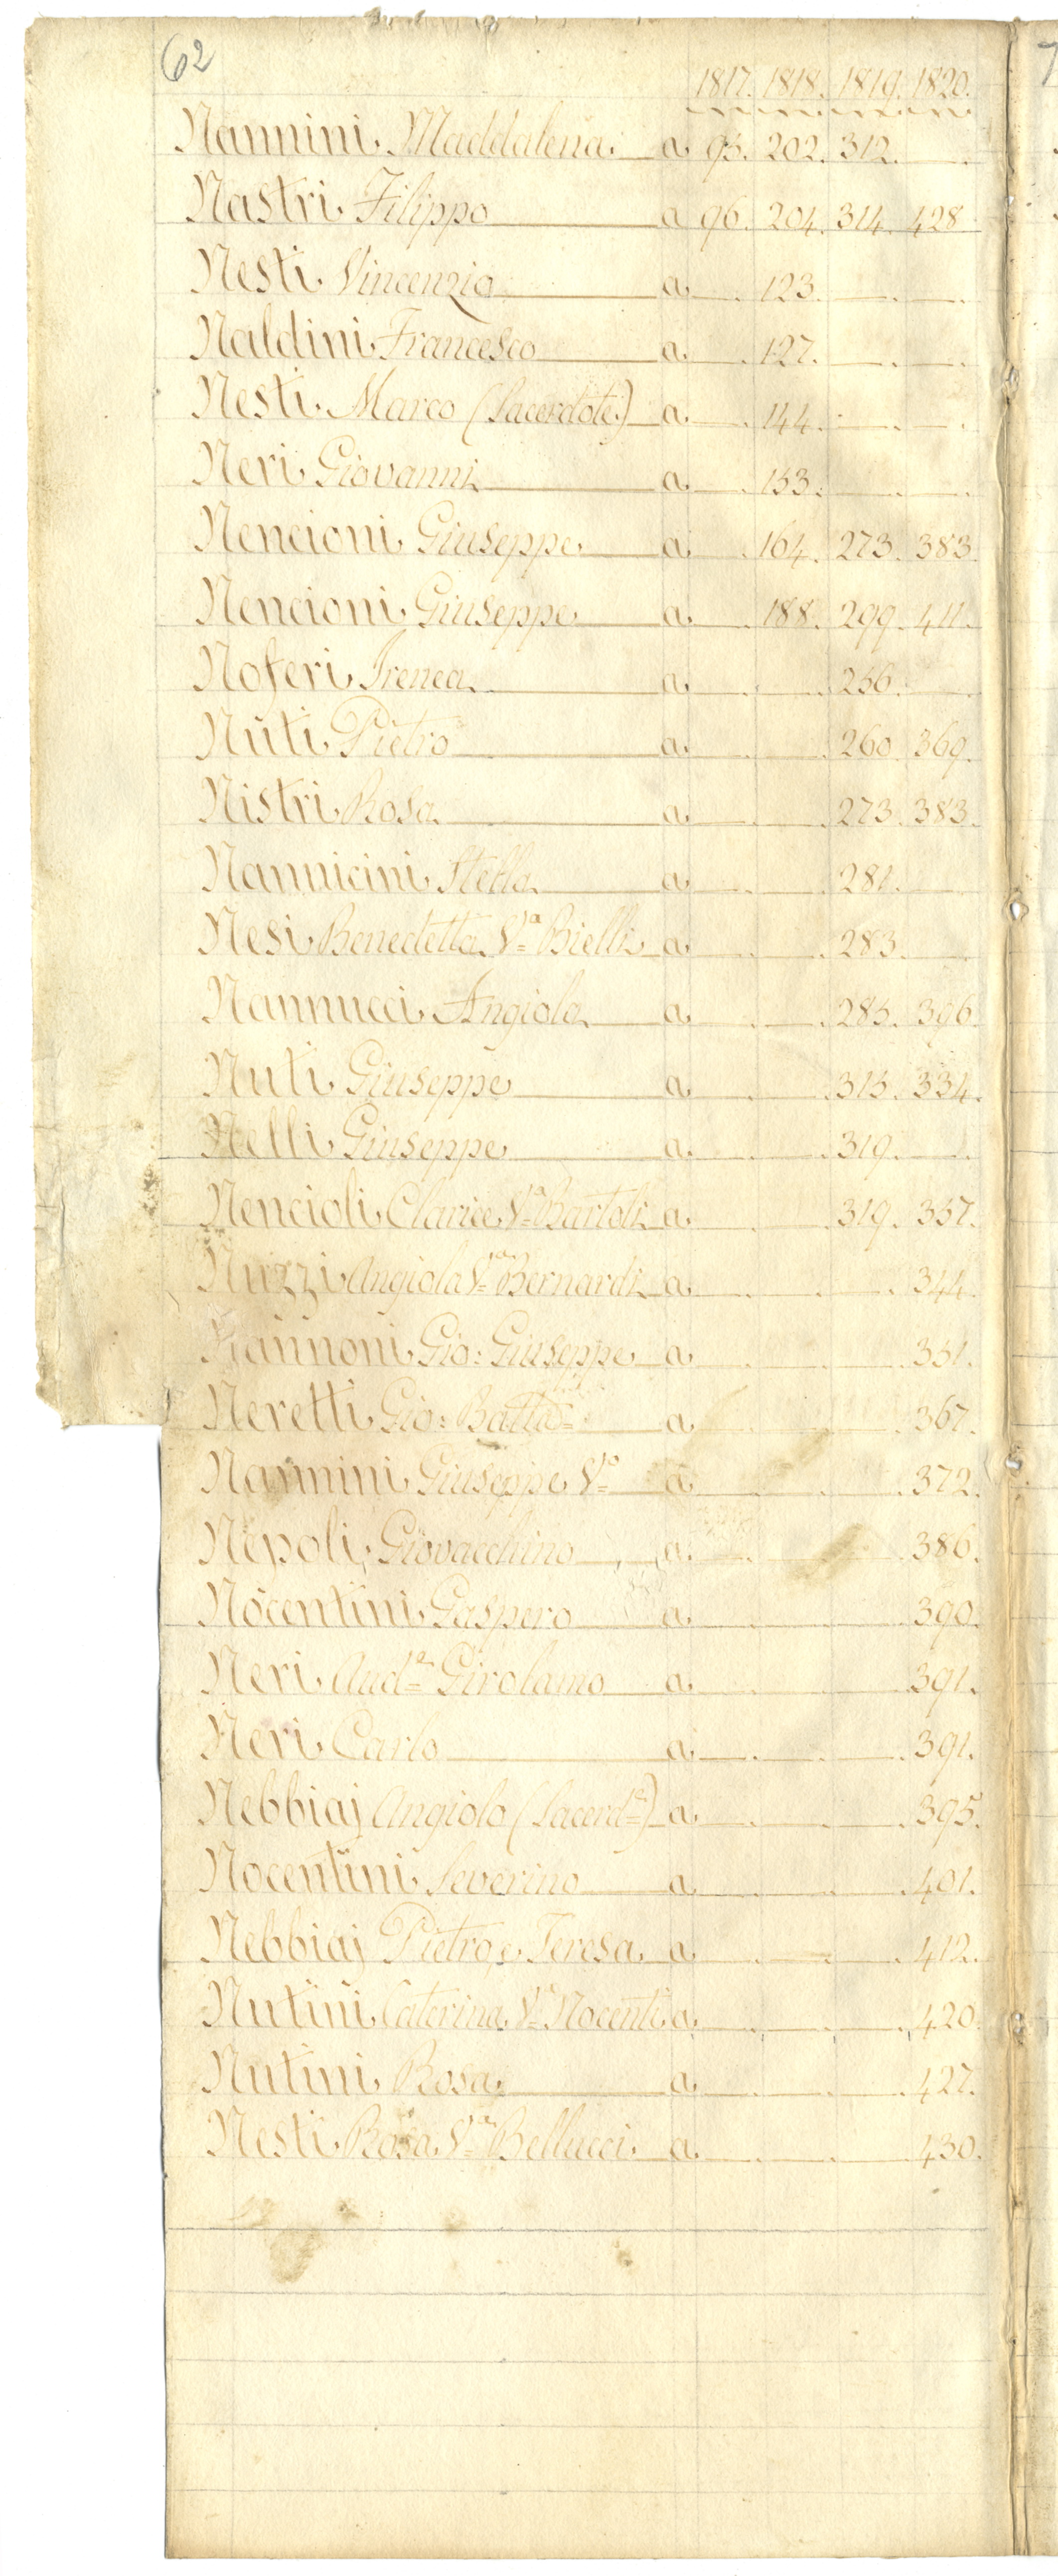 62
1817. 1818. 1819. 1820.
Nannini Maddalena a 95. 202. 312.
Nastri Filippo a 96. 204. 314. 428
Nesti Vincenzio a 123.
Naldini Francesco a 127.
Nesti Marco (Sacerdote) a 144.
Neri Giovanni a 153.
Nencioni Giuseppe a 164. 273. 383
Nencioni Giuseppe a 188. 299. 411.
Noferi Irenea a 256.
Nuti Pietro a 260. 369.
Nistri Rosa a 273. 383.
Nannicini Stella a 281.
Nesi Benedetta Va Bielli a 283.
Nannucci Angiola a 285. 396
Nuti Giuseppe a 315. 334.
Nelli Giuseppe a 319.
Nencioli Clarice Va Bartoli a 319. 357.
Nuzzi Angiola Va Bernardi a 344.
Nannoni Gio: Giuseppe a 351.
Neretti Gio: Batta a 367.
Nannini Giuseppe Vo a 372.
Nepoli Giovacchino a 386.
Nocentini Gaspero a 390.
Neri Aud.e Girolamo a 391.
Neri Carlo a 391.
Nebbiaj Angiolo (Sacerd.e) a 395.
Nocentini Severino a 401.
Nebbiaj Pietro, e Teresa a 412.
Nutini Caterina Va Nocenti a 420.
Nutini Rosa a 427.
Nesti Rosa Va Bellucci a 430.